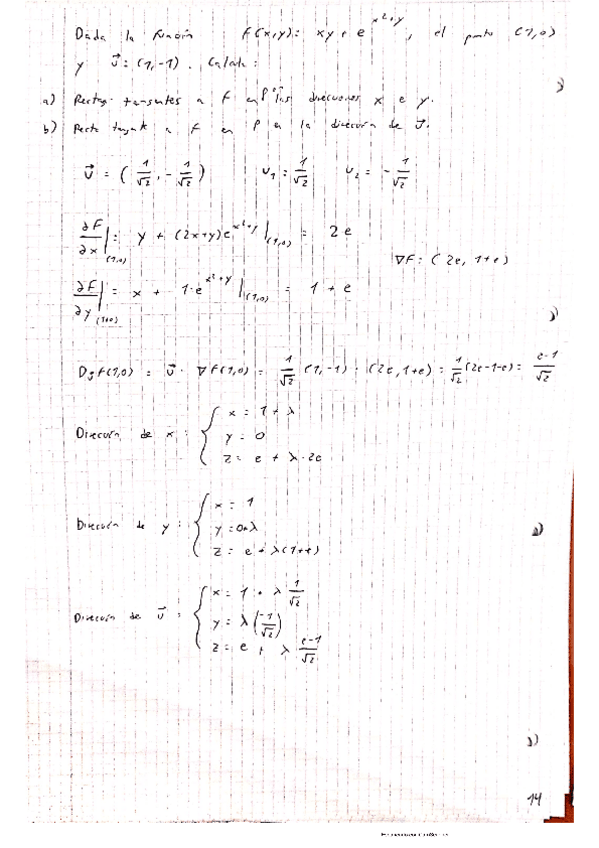 Dada la función f(x,y): xy + e^{x²+y}, el punto (1,0)
y v⃗: (1,-1). Calcula:
a) Rectas tangentes a f en P en las direcciones x e y.
b) Recta tangente a f en P en la dirección de v⃗.
v⃗ = (1/√2, -1/√2) v₁ = 1/√2 v₂ = -1/√2
∂F/∂x|(1,0) : y + (2x+y)e^{x²+y}|(1,0) = 2e
∇F: (2e, 1+e)
∂F/∂y|(1,0) = x + 1·e^{x²+y}|(1,0) = 1 + e
f(1,0) = v⃗ · ∇f(1,0) = 1/√2 (1,-1) · (2e, 1+e) = 1/√2 (2e-1-e) = e-1/√2
x = 1 + λ
Dirección de x: { y = 0
z = e + λ·2e
x = 1
Dirección de y: { y = 0+λ
z = e + λ(1+e)
x = 1 + λ 1/√2
Dirección de v⃗ : { y = λ(-1/√2)
z = e + λ e-1/√2
14